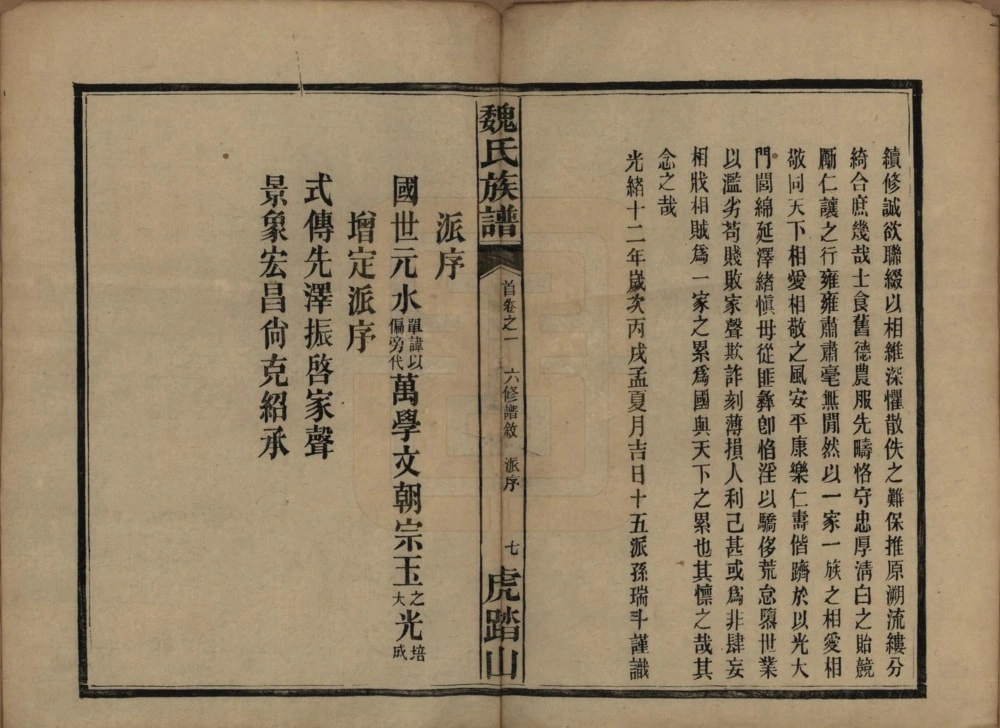 續修誠欲聯綴以相維深懼散佚之難保推原溯流縷分
綺合庶幾哉士食舊德農服先疇恪守忠厚淸白之貽競
勵仁讓之行雍雍肅肅毫無閒然以一家一族之相愛相
敬同天下相愛相敬之風安平康樂仁壽偕躋於以光大
門閭綿延澤緒愼毋從匪彝卽慆淫以驕侈荒怠隳世業
以濫劣苟賤敗家聲欺詐刻薄損人利己甚或爲非肆妄
相戕相賊爲一家之累爲國與天下之累也其懍之哉其
念之哉
光緒十二年嵗次丙戌孟夏月吉日十五派孫瑞斗謹識
魏氏族譜
首卷之一
六修譜敘
派序
七
虎踏山
派序
國世元水單諱以偏旁代萬學文朝宗玉之大光培成
增定派序
式傳先澤振啓家聲
景象宏昌尙克紹承